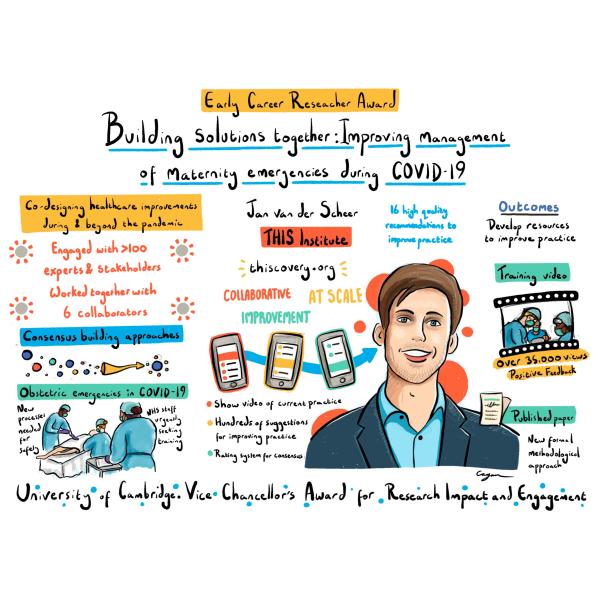 Early Career Reseacher Award
Building Solutions together: Improving management
of Maternity emergencies during COVID-19
Co-designing healthcare improvements
during & beyond the pandemic
Engaged with >100
experts & stakeholders
Worked together with
6 collaborators
Consensus building approaches
Obstetric emergencies in COVID-19
New
processes
needed
for
safety
NHS staff
urgently
seeking
training
Jan van der Scheer
THIS Institute
thiscovery.org
COLLABORATIVE
AT SCALE
IMPROVEMENT
Show video of current practice
Hundreds of suggestions
for improving practice
Rating system for consensus
16 high quality
recommendations to
improve practice
Outcomes
Develop resources
to improve practice
Training video
Over 35,000 views
Positive Feedback
Published paper
New formal
methodological
approach
Cagan
University of Cambridge. Vice-Chancellor's Award for Research Impact and Engagement